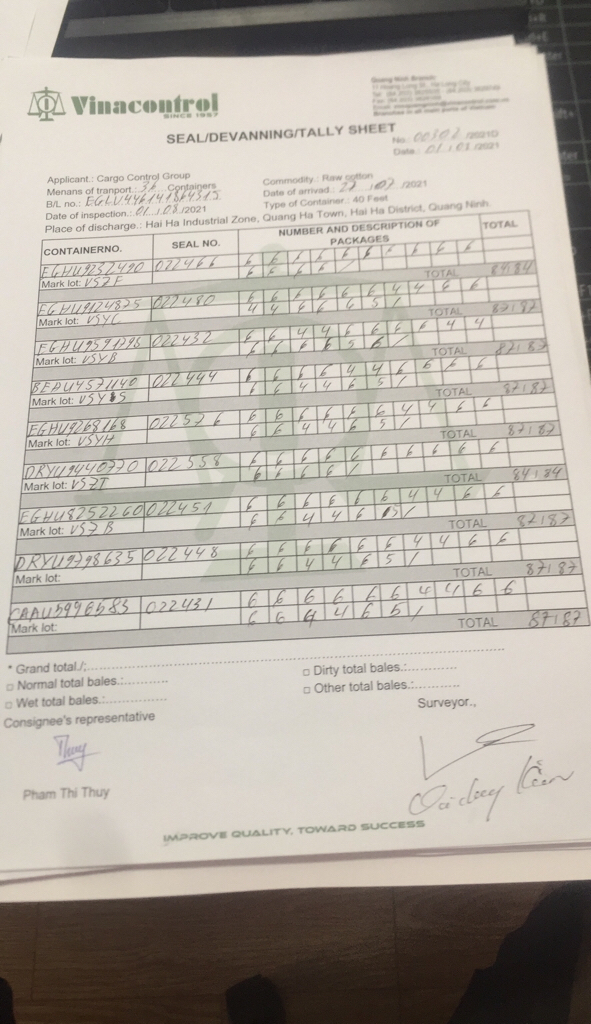 Vinacontrol
SINCE 1957
Quang Ninh Branch
SEAL/DEVANNING/TALLY SHEET
No.: /2021
Date.: 01/03/2021
Applicant.: Cargo Control Group
Commodity.: Raw cotton
Menans of tranport.: Containers
Date of arrivad.: /2021
B/L no.: EGLV446141864315
Type of Container.: 40 Feet
Date of inspection.: 01/03/2021
Place of discharge.: Hai Ha Industrial Zone, Quang Ha Town, Hai Ha District, Quang Ninh.
CONTAINERNO. SEAL NO. NUMBER AND DESCRIPTION OF PACKAGES TOTAL
EGHU9232490 022466 6 6 6 6 6 6 6 6 6 6
6 6 6 6 /
Mark lot: VSZF TOTAL 84/84
EGHU9124825 022480 6 6 6 6 6 6 4 4 6 6
4 4 6 6 6 5 /
Mark lot: VSYC TOTAL 87/87
022432 6 6 4 4 6 6 6 6 4 4
6 6 6 6 5 6 /
Mark lot: VSYB TOTAL 87/87
BEAU4571140 022444 6 6 6 6 4 4 6 6 6 6
6 6 4 4 6 5 /
Mark lot: TOTAL 87/87
EGHU9268168 022526 6 6 6 6 6 6 4 4 6 6
6 6 4 4 6 5 /
Mark lot: VSYH TOTAL 87/87
DRYU9440770 022558 6 6 6 6 6 6 6 6 6 6
6 6 6 6 /
Mark lot: VSZT TOTAL 84/84
EGHU8252260 022451 6 6 6 6 6 6 4 4 6 6
6 6 4 4 6 5 /
Mark lot: VSZB TOTAL 87/87
DRYU9798635 022448 6 6 6 6 6 6 4 4 6 6
6 6 4 4 6 5 /
Mark lot: TOTAL 87/87
CAAU5996583 022431 6 6 6 6 6 6 4 4 6 6
6 6 4 4 6 5 /
Mark lot: TOTAL 87/87
* Grand total./:
□ Normal total bales.:
□ Dirty total bales.:
□ Wet total bales.:
□ Other total bales.:
Consignee's representative
Surveyor.,
Thuy
Pham Thi Thuy
IMPROVE QUALITY, TOWARD SUCCESS